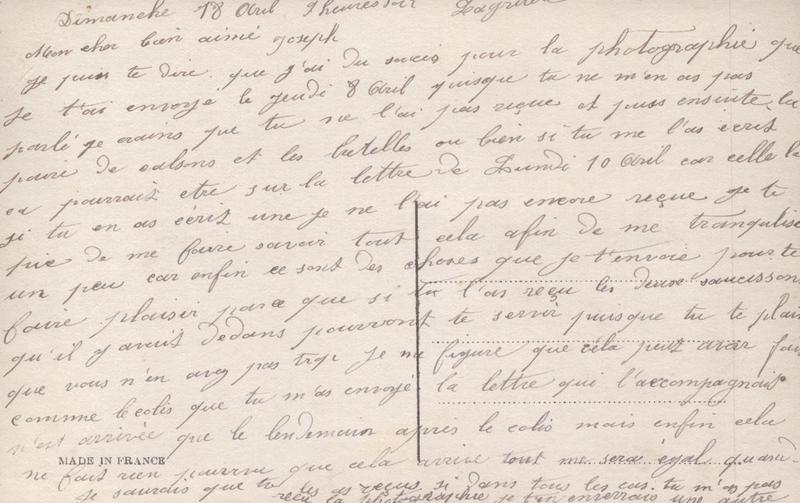 Dimanche 18 Avril 9 heures soir
Mon cher bien aimé Joseph
Je puis te dire que j'ai du soucis pour la photographie que
Je t'ai envoyé le Jeudi 8 Avril puisque tu ne m'en as pas
parlé je crains que tu ne l'ai pas reçue et puis ensuite la
paire de calsons et les bretelles ou bien si tu me l'as écrit
ça pourrait etre sur la lettre de Lundi 10 Avril car celle la
si tu en as écrit une je ne l'ai pas encore reçue je te
prie de me faire savoir tout cela afin de me tranquilise
un peu car enfin ce sont des choses que je t'envoie pour te
faire plaisir parce que si tu l'as reçu les deux saucissons
qu'il y avait dedans pourront te servir puisque tu te plain
que vous n'en avez pas trop Je me figure que cela peut avoir fait
comme le colis que tu m'as envoyé la lettre qui l'accompagnait
n'est arrivée que le lendemain après le colis mais enfin cela
ne fait rien pourvu que cela arrive tout me sera égal quand
MADE IN FRANCE
Je saurais que tu les as reçus si dans tous les cas tu m'as pas
reçu la photographie je t'en enverrais une autre